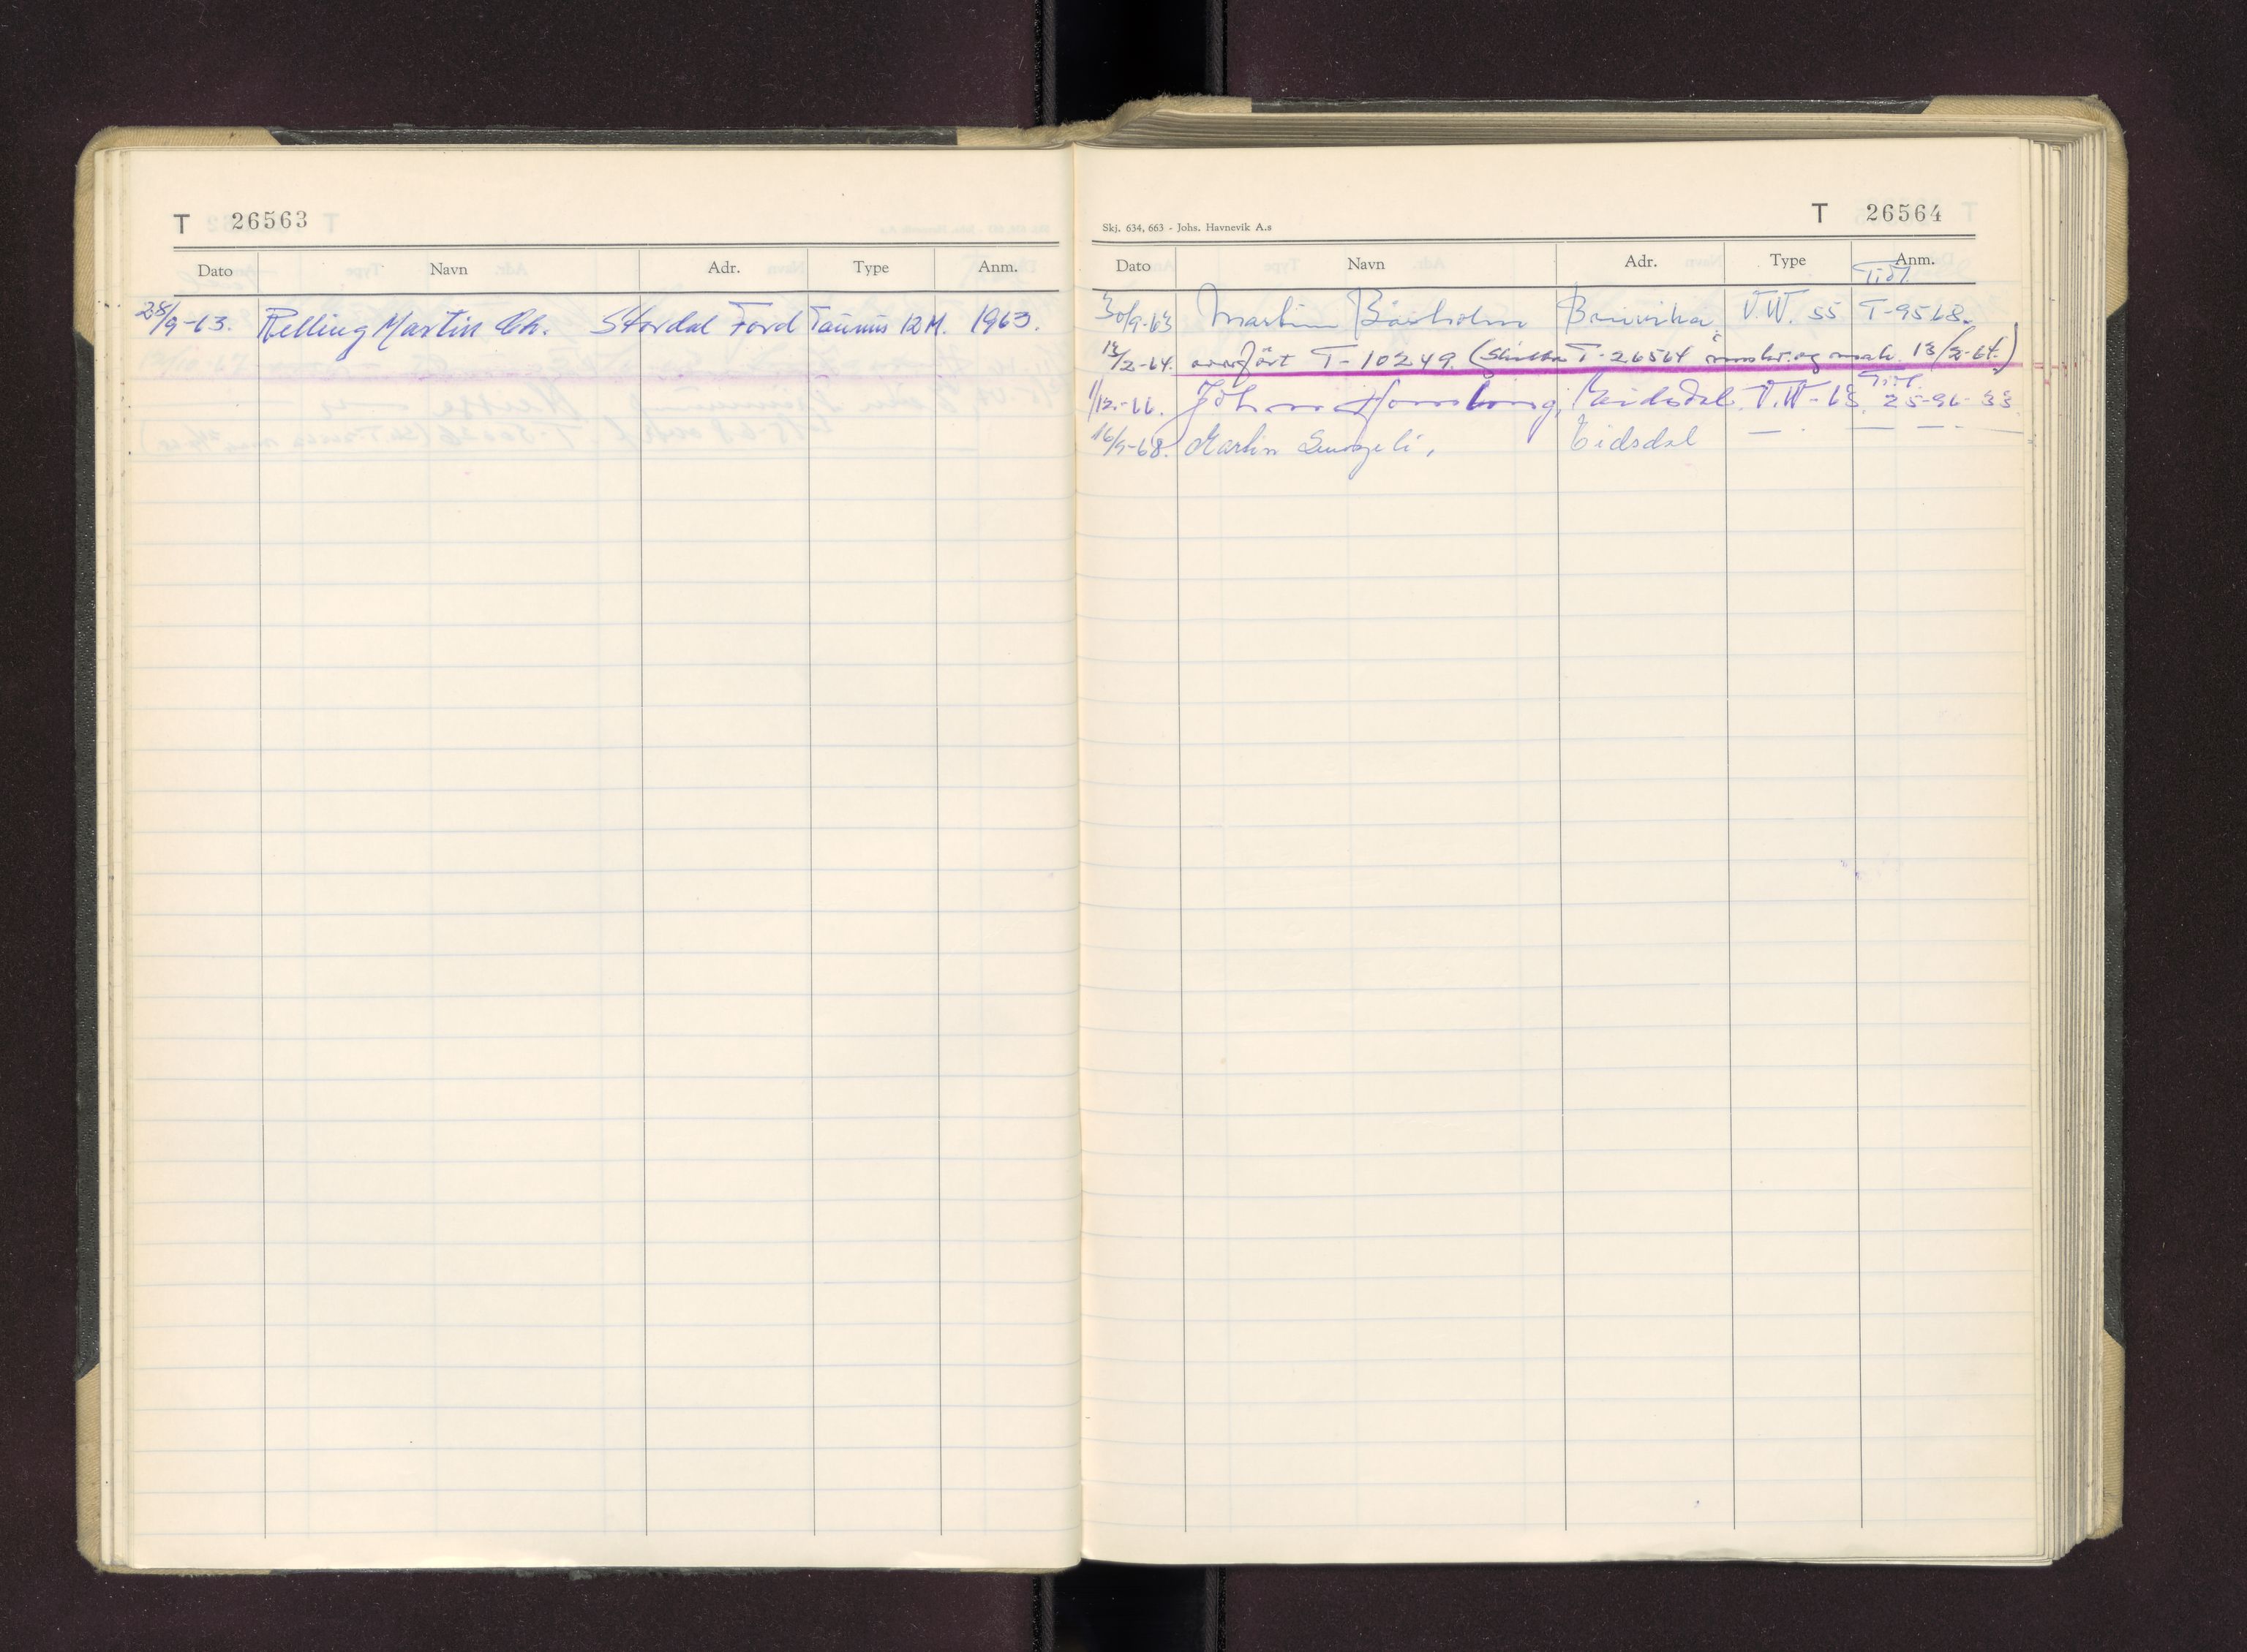 T 26563
Dato Navn Adr. Type Anm.
28/9-63. Relling Martin Ch. Stordal Ford Taunus 12 M. 1963.
Skj. 634, 663 - Johs. Havnevik A.s
T 26564
Dato Navn Adr. Type Anm.
Tidl.
30/9-63 Martin V.W. 55 T-9568.
13/2-64. overført T-10249. (Skilter T-26564 og mak. 13/2-64.)
Tidl.
1/12-66. Johan V.W-63. 25-96-33.
16/9-68. Martin Eidsdal — — — —